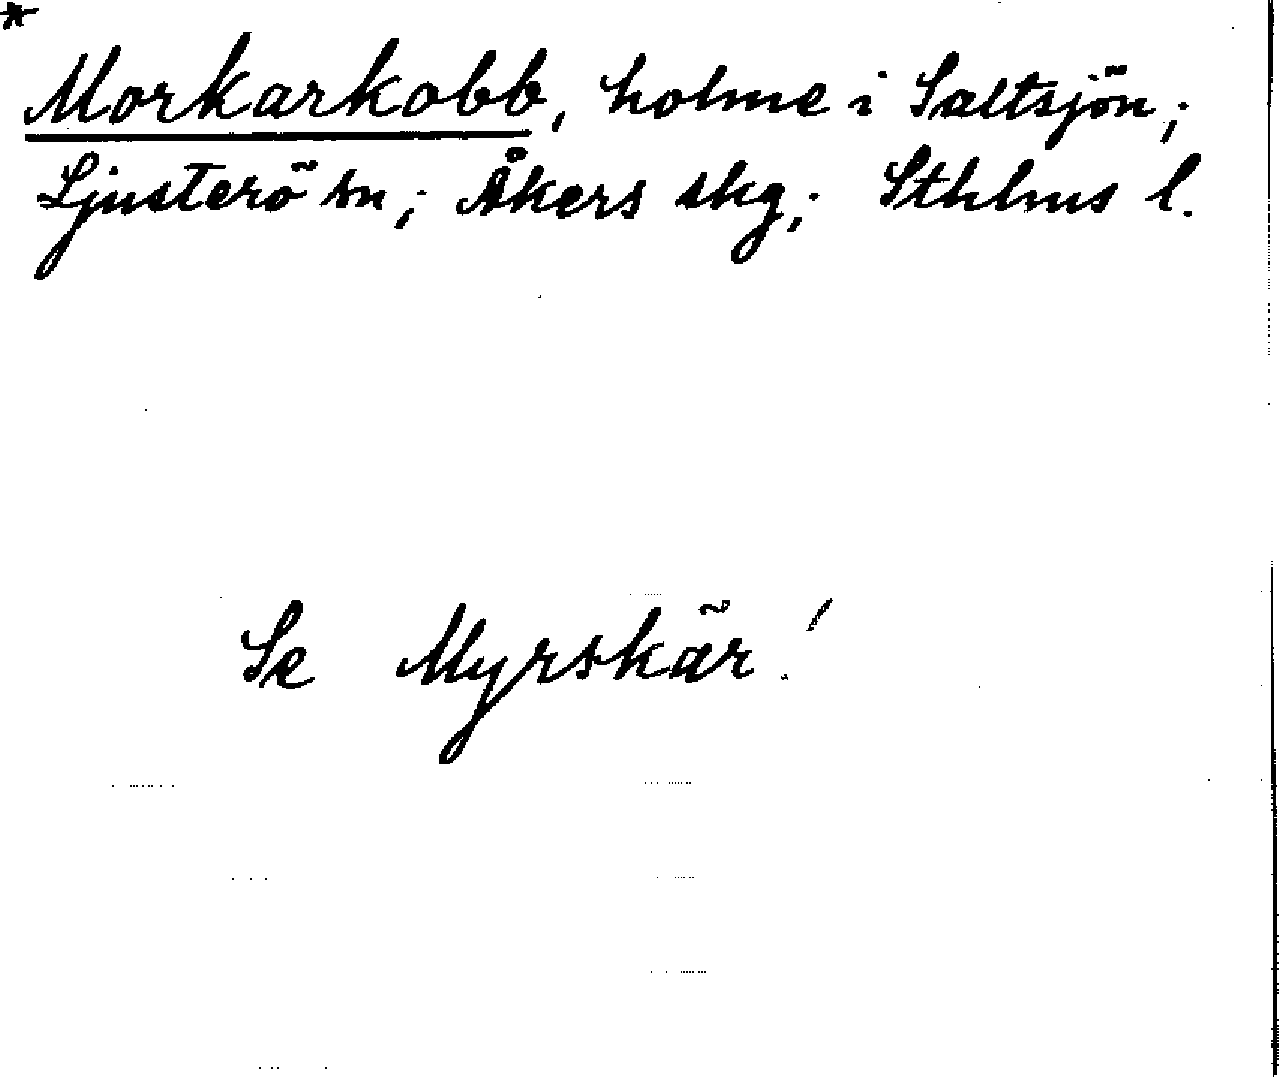 *
Morkarkobb, holme i Saltsjön;
Ljusterö sn; Åkers skg; Sthlms l.
Se Myrskär!